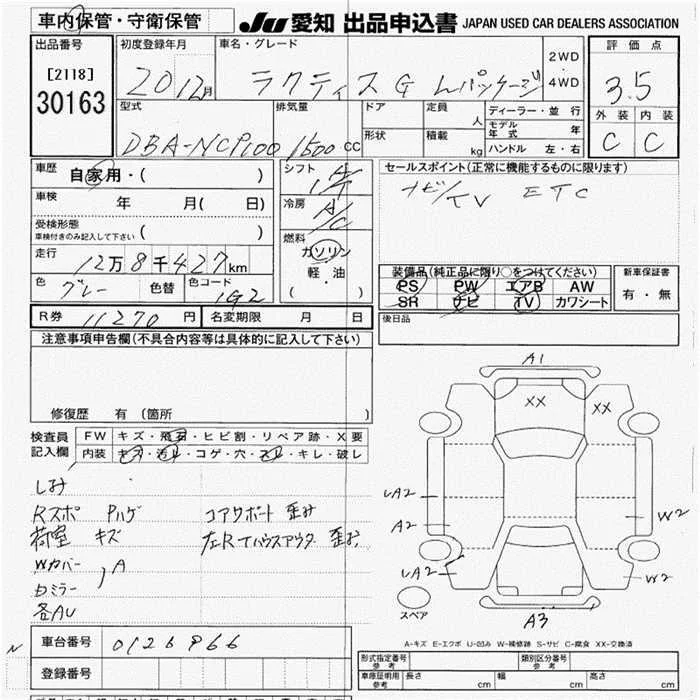 車内保管・守衛保管
JU 愛知 出品申込書 JAPAN USED CAR DEALERS ASSOCIATION
出品番号
[2118]
30163
初度登録年月
20 12月
車名・グレード
ラクティス G Lパッケージ
2WD
・
4WD
評価点
3.5
外装 内装
C C
型式
DBA-NCP100
排気量
1500 CC
ドア
形状
定員 人
積載 kg
ディーラー・並行
モデル年式 年
ハンドル 左・右
車歴
自家用・( )
車検
年 月( 日)
受検形態
車検付きのみ記入して下さい ( )
走行
12万8千427km
色 グレー 色替 色コード 1G2
シフト
冷房 A/C
燃料
ガソリン
軽・油
( ・ )
セールスポイント(正常に機能するものに限ります)
ナビ/TV ETC
装備品(純正品に限り○をつけてください)
PS PW エアB AW
SR ナビ TV カワシート
新車保証書
有・無
R券 11270円 名変期限 月 日
後日品
注意事項申告欄(不具合内容等は具体的に記入して下さい)
修復歴 有 (箇所 )
検査員
記入欄
FW キズ・飛石・ヒビ割・リペア跡・X要
内装 キズ・汚レ・コゲ・穴・スレ・キレ・破レ
しみ
Rスポ Pハゲ コアサポート 歪み
荷室 キズ 左RTハウスアウタ 歪み
Wカバー
A
ミラー
各AU
A1
XX XX
A2
A2
A2
W2
W2
スペア
A3
A-キズ E-エクボ U-凹み W-補修跡 S-サビ C-腐食 XX-交換済
N
車台番号 0126966
登録番号
形式指定番号
参考
類別区分番号
参考
車庫証明用
参考
長さ cm 幅 cm 高さ cm